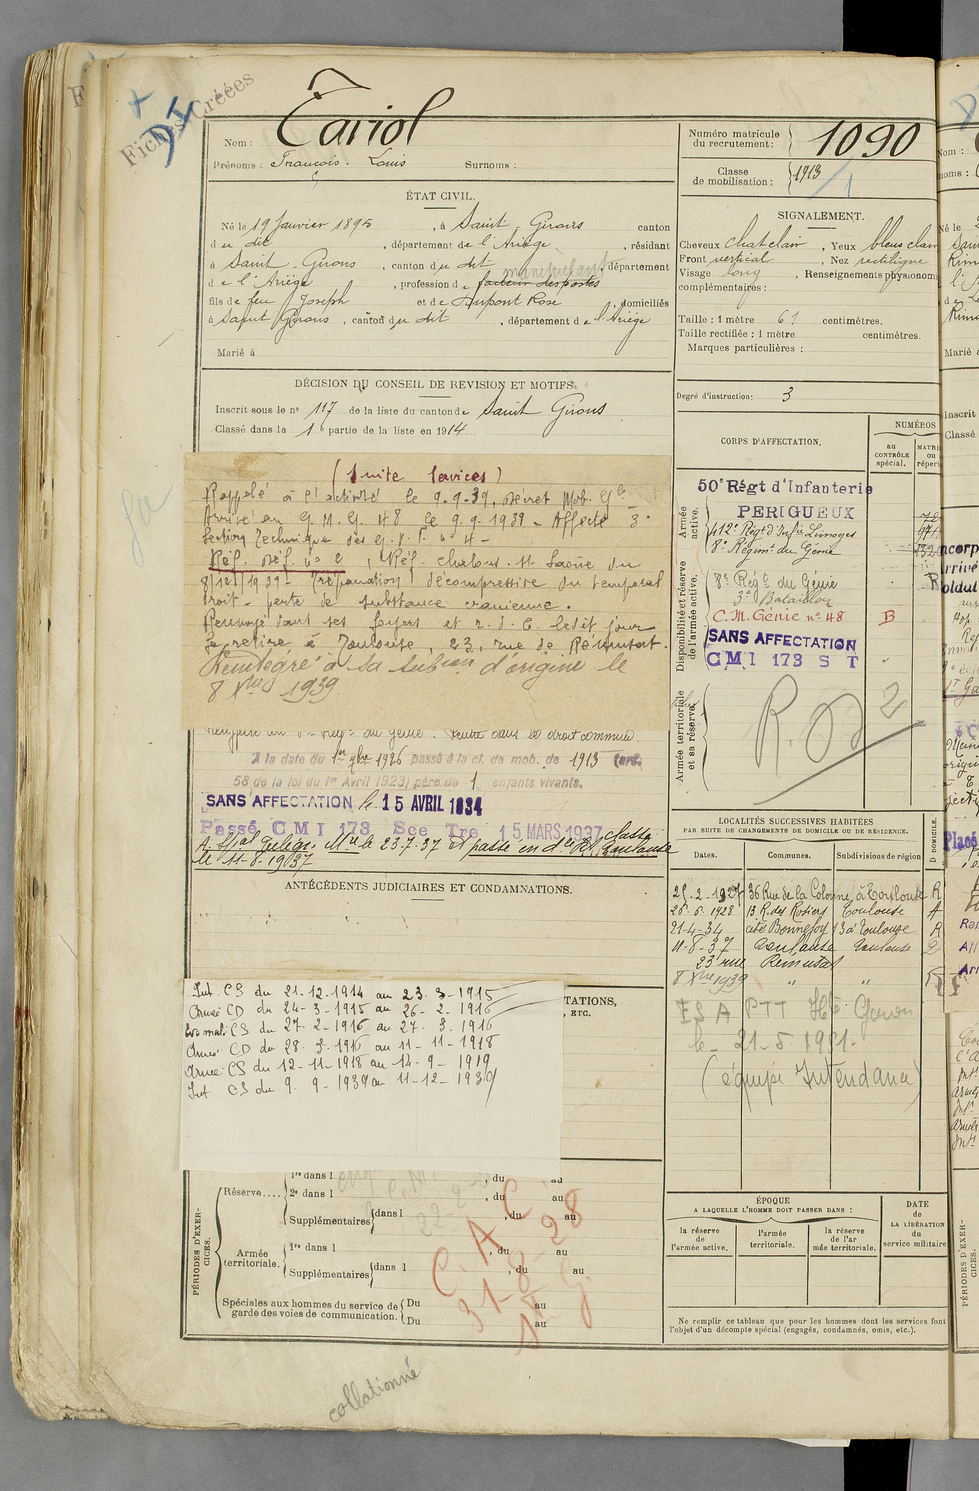 Fiches Créées
Nom : Tariol
Prénoms : François. Louis Surnoms :
Numéro matricule du recrutement : 1090
Classe de mobilisation : 1913
ÉTAT CIVIL.
Né le 19 Janvier 1895, à Saint Girons canton
du dit, département de l'Ariège, résidant
à Saint Girons, canton du dit, département
de l'Ariège, profession de facteur des postes
fils de feu Joseph et de Dupont Rose, domiciliés
à Saint Girons, canton du dit, département de l'Ariège
Marié à
SIGNALEMENT.
Cheveux chat clair, Yeux bleus clair
Front vertical, Nez rectiligne
Visage long, Renseignements physionom
complémentaires :
Taille : 1 mètre 61 centimètres.
Taille rectifiée : 1 mètre centimètres.
Marques particulières :
Degré d'instruction : 3
DÉCISION DU CONSEIL DE REVISION ET MOTIFS.
Inscrit sous le n° 117 de la liste du canton de Saint Girons
Classé dans la 1e partie de la liste en 1914
(Suite Services)
Rappelé à l'activité le 9.9.39, Décret Mob. Gle
Arrivé au G.M.G. 48 le 9.9.1939 - Affecté 3e
Section Technique des
Réf. Déf. n° 2, Réf. Chalons. St Saône du
8/12/1939 - Trépanation décompressive du temporal
droit - perte de substance cranienne.
Renvoyé dans ses foyers et r.d.c. ledit jour
Se retire à Toulouse, 23, rue de Rémusat.
Réintégré à sa subon d'origine le
8 Xbre 1939
du Génie. dans le droit commun.
A la date du 1er 1926 passé à la cl. de mob. de 1913 (art.
58 de la loi du 1er Avril 1923) père de 1 enfants vivants.
SANS AFFECTATION le 15 AVRIL 1934
Passé CMI 173 Sce Tre 15 MARS 1937 classe
le 23.7.37 et passé en
le 11-8-1937
ANTÉCÉDENTS JUDICIAIRES ET CONDAMNATIONS.
Int. CS du 21-12-1914 au 23-3-1915
Armée CD du 24-3-1915 au 26-2-1916
CS du 27-2-1916 au 27-3-1916
Armée CD du 28-3-1916 au 11-11-1918
Armée CS du 12-11-1918 au 14-9-1919
Int CS du 9-9-1939 au 11-12-1939
TATIONS,
, ETC.
PÉRIODES D'EXERCICES.
Réserve.... 1re dans l , du au
2e dans l , du au
Supplémentaires dans l , du au
Armée territoriale. 1re dans l , du au
Supplémentaires dans l , du au
Spéciales aux hommes du service de garde des voies de communication. Du au
Du au
C.A.C
31-8-28
St G
collationné
CORPS D'AFFECTATION.
NUMÉROS
au CONTRÔLE spécial.
Armée active.
50e Régt d'Infanterie
PERIGUEUX
412e Régt d'Infie Limoges
8e Régimt du Génie
Disponibilité et réserve de l'armée active.
8e Régt du Génie
3e Bataillon
C.M. Génie n° 48 B
SANS AFFECTATION
CMI 173 S T
Armée territoriale et sa réserve.
R.D 2
LOCALITÉS SUCCESSIVES HABITÉES
PAR SUITE DE CHANGEMENTS DE DOMICILE OU DE RÉSIDENCE.
Dates. Communes. Subdivisions de région D DOMICILE.
25.2.1927 36 Rue de la Colonne, à Toulouse R
26.6.1928 13 R. des Rosiers Toulouse
21-4-34 cité Bonnefoy 13 à Toulouse R
11-8-37 Toulouse Toulouse
23 rue Rémusat
8 Xbre 1939 " "
ESA PTT Hte Garonne
le 21-5-1921-
(équipe Intendance)
ÉPOQUE
A LAQUELLE L'HOMME DOIT PASSER DANS :
la réserve de l'armée active. l'armée territoriale. la réserve de l'armée territoriale.
DATE de LA LIBÉRATION du service militaire
Ne remplir ce tableau que pour les hommes dont les services font
l'objet d'un décompte spécial (engagés, condamnés, omis, etc.).